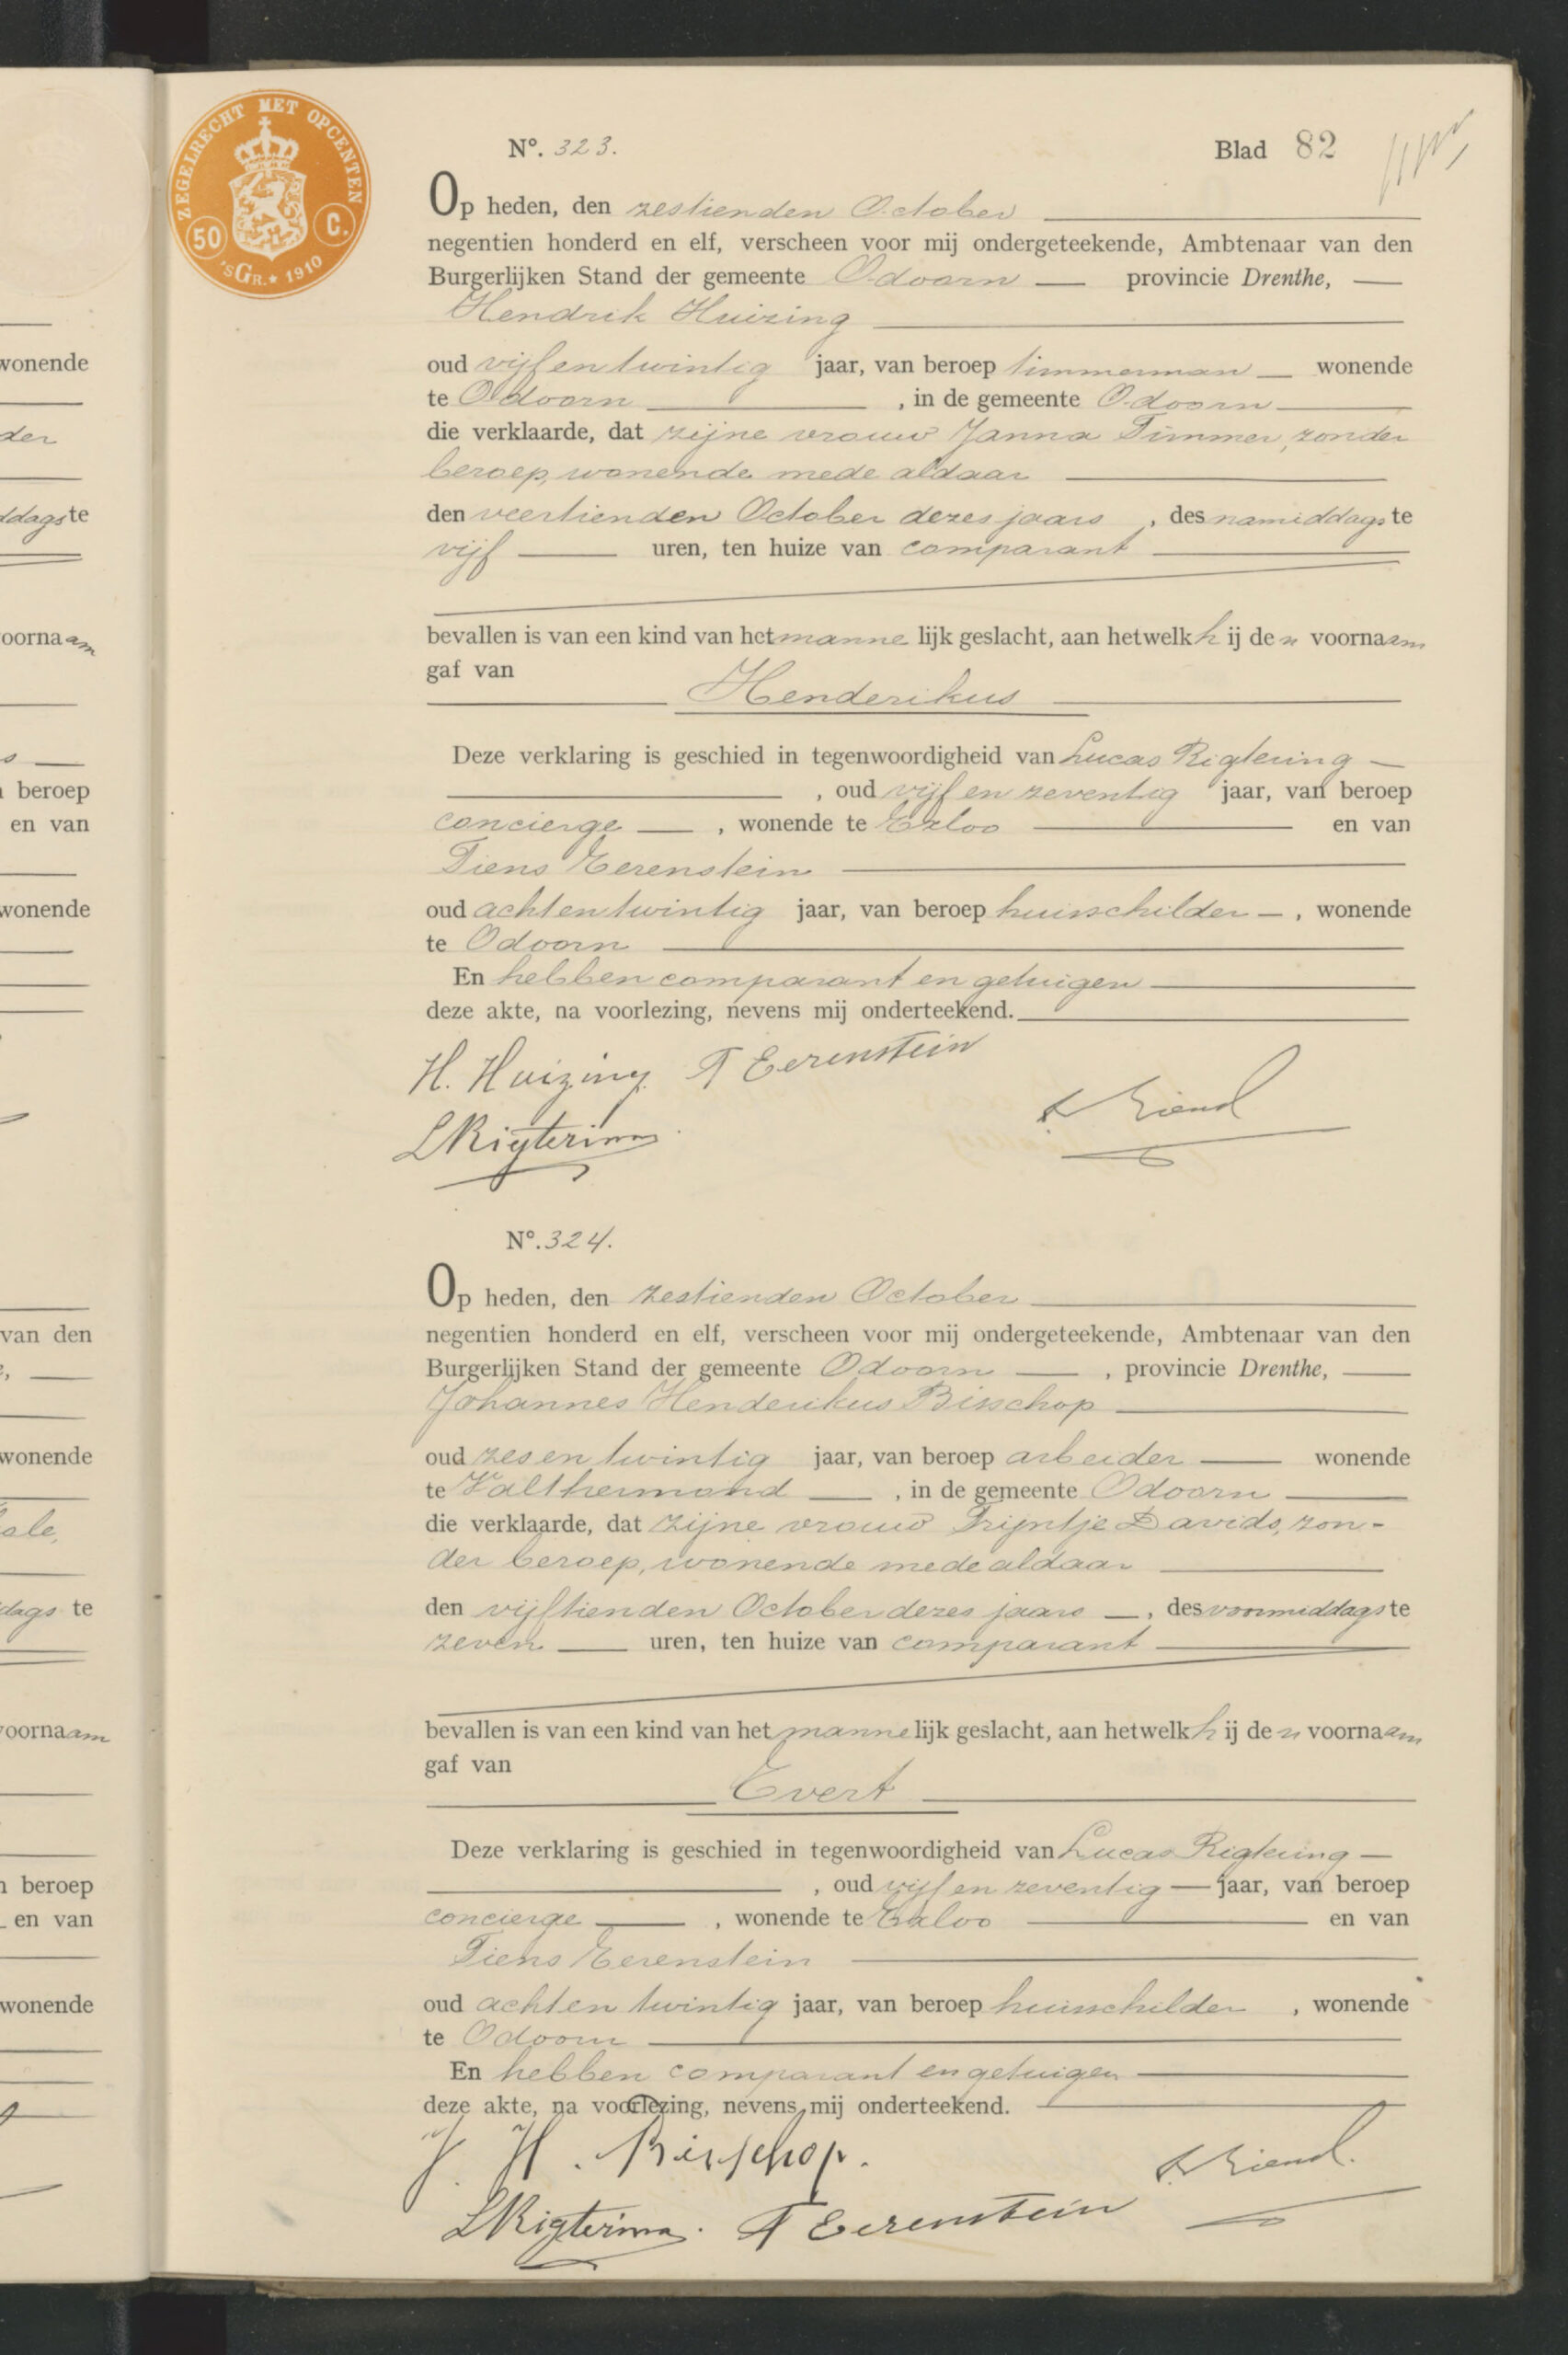 ZEGELRECHT MET OPCENTEN
50 C.
'SGR.★1910
wonende
der
ddags te
voornaam
beroep
en van
wonende
van den
wonende
dags te
voornaam
beroep
en van
wonende
Nº. 323.
Blad 82
Op heden, den zestienden October
negentien honderd en elf, verscheen voor mij ondergeteekende, Ambtenaar van den
Burgerlijken Stand der gemeente Odoorn provincie Drenthe,
Hendrik Huizing
oud vijf en twintig jaar, van beroep timmerman wonende
te Odoorn , in de gemeente Odoorn
die verklaarde, dat zijne vrouw Janna Timmer, zonder
beroep, wonende mede aldaar
den veertienden October dezes jaars , des namiddags te
vijf uren, ten huize van comparant
bevallen is van een kind van het mannelijk geslacht, aan hetwelk hij den voornaam
gaf van
Henderikus
Deze verklaring is geschied in tegenwoordigheid van Lucas Rigtering
, oud vijf en zeventig jaar, van beroep
concierge , wonende te Exloo en van
Tiens Eerenstein
oud acht en twintig jaar, van beroep huisschilder , wonende
te Odoorn
En hebben comparant en getuigen
deze akte, na voorlezing, nevens mij onderteekend.
H. Huizing T Eerenstein
LRigtering
Nº. 324.
Op heden, den zestienden October
negentien honderd en elf, verscheen voor mij ondergeteekende, Ambtenaar van den
Burgerlijken Stand der gemeente Odoorn , provincie Drenthe,
Johannes Henderikus Bisschop
oud zes en twintig jaar, van beroep arbeider wonende
te Valthermond , in de gemeente Odoorn
die verklaarde, dat zijne vrouw Trijntje Davids, zon-
der beroep, wonende mede aldaar
den vijftienden October dezes jaars , des voormiddags te
zeven uren, ten huize van comparant
bevallen is van een kind van het mannelijk geslacht, aan hetwelk hij den voornaam
gaf van
Evert
Deze verklaring is geschied in tegenwoordigheid van Lucas Rigtering
, oud vijf en zeventig jaar, van beroep
concierge , wonende te Exloo en van
Tiens Eerenstein
oud acht en twintig jaar, van beroep huisschilder , wonende
te Odoorn
En hebben comparant en getuigen
deze akte, na voorlezing, nevens mij onderteekend.
J. H. Bisschop.
LRigtering. T Eerenstein